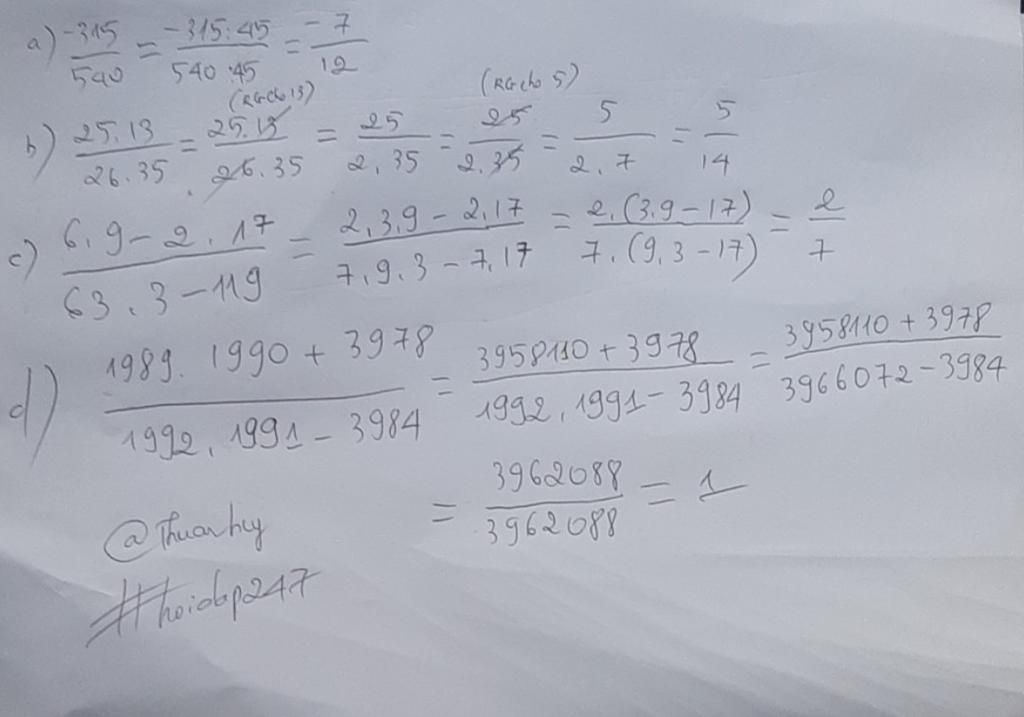 a) -315/540 = -315:45/540:45 = -7/12
(RG cho 13) (RG cho 5)
b) 25.13/26.35 = 25.13/26.35 = 25/2.35 = 25/2.35 = 5/2.7 = 5/14
c) 6.9-2.17/63.3-119 = 2.3.9-2.17/7.9.3-7.17 = 2.(3.9-17)/7.(9.3-17) = 2/7
d) 1989.1990+3978/1992.1991-3984 = 3958110+3978/1992.1991-3984 = 3958110+3978/3966072-3984
= 3962088/3962088 = 1
@Thuanhy
#hoidap247